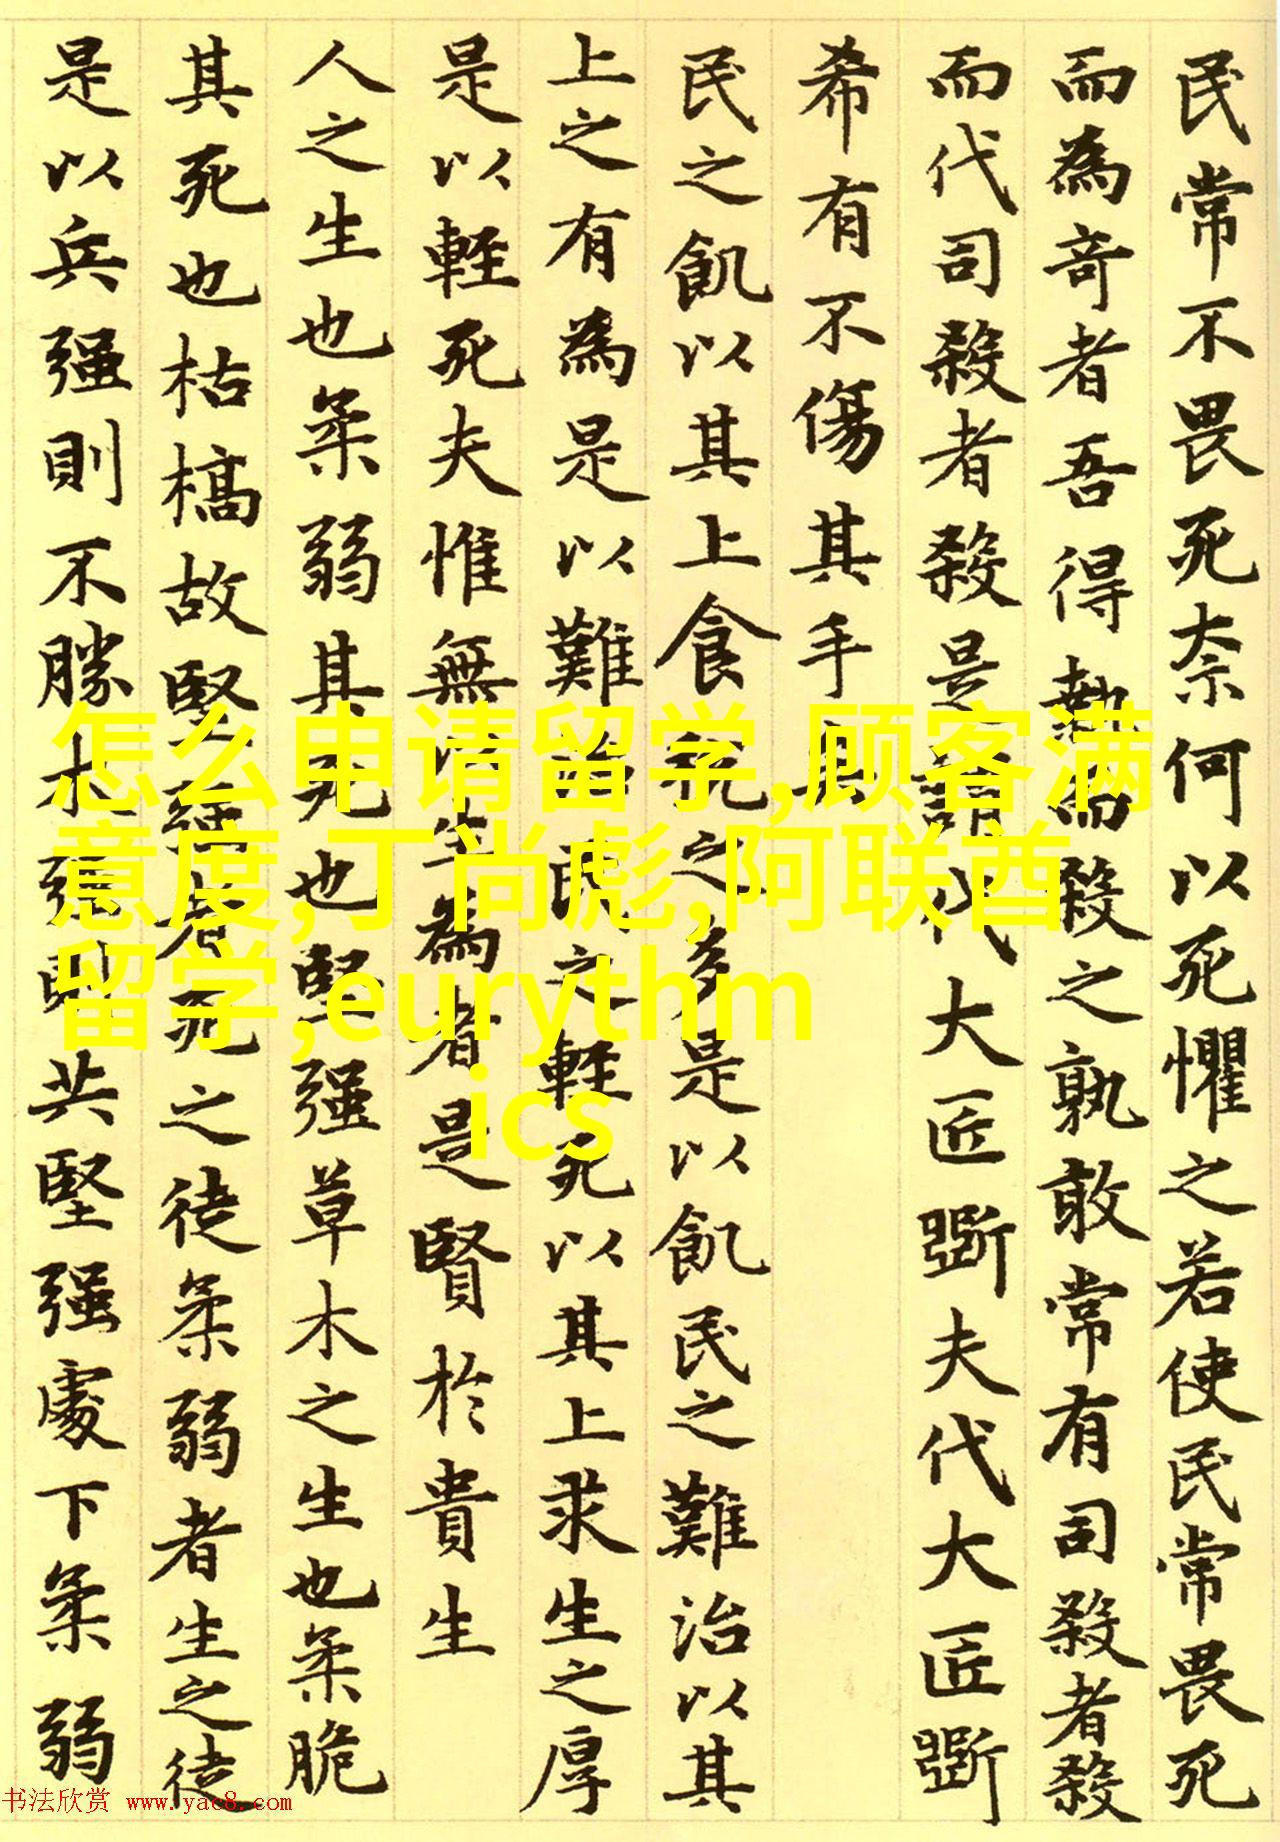 民常不畏死奈何以死懼之若使民常畏死
而為奇者吾得執而殺之孰敢常有司殺者殺
而代司殺者殺是謂代大匠斲夫代大匠斲
希有不傷其手矣
民之飢以其上食稅之多是以飢民之難治以其
上之有為是以難治民之輕死以其上求生之厚
是以輕死夫惟無以生為者是賢於貴生
人之生也柔弱其死也堅强草木之生也柔脆
其死也枯槁故堅强者死之徒柔弱者生之徒
是以兵强則不勝木强則共堅强處下柔弱
怎么申请留学,顾客满
意度,丁尚彪,阿联酋
留学,eurythm
ics
书法欣赏 www.yac8.com